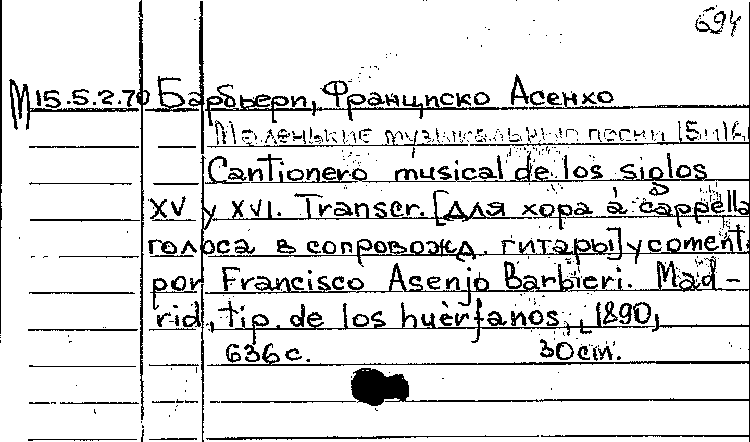 694
М 15.5.2.70 Барбьери, Франциско Асенхо
Маленькие музыкальные песни 15 и 16
Cantionero musical de los siglos
XV y XVI. Transcr. [Для хора a cappella
голоса в сопровожд. гитары] y coment.
por Francisco Asenjo Barbieri. Mad-
rid, tip. de los huèrfanos, [1890]
636 с. 30 cm.